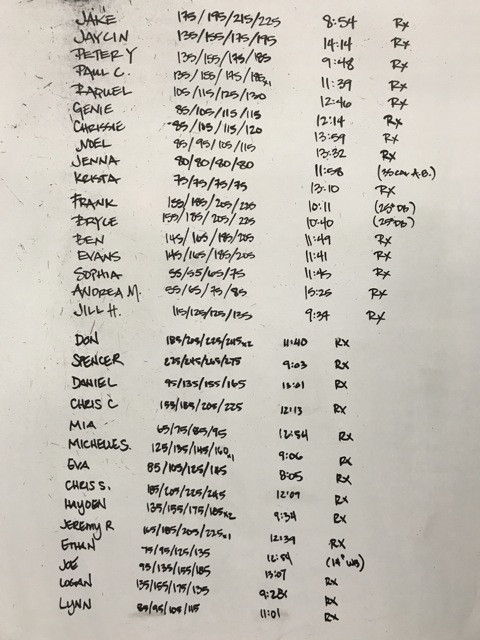 JAKE 175/195/215/225 8:54 RX
JAYCIN 135/155/175/195 14:14 RX
PETER Y 135/155/175/185 9:48 RX
PAUL C. 135/155/175/185x1 11:39 RX
RAQUEL 105/115/125/130 12:46 RX
GENIE 85/105/115/115 12:14 RX
CHRISSIE 85/105/115/120 13:59 RX
NOEL 85/95/105/115 13:32 RX
JENNA 80/80/80/80 11:58 (35 CAL A.B.)
KRISTA 75/75/75/75 13:10 RX
FRANK 155/185/205/225 10:11 (25# DB)
BRYCE 155/185/205/225 10:40 (25# DB)
BEN 145/165/185/205 11:49 RX
EVANS 145/165/185/205 11:41 RX
SOPHIA 55/55/65/75 11:45 RX
ANDREA M. 55/65/75/85 15:25 RX
JILL H. 115/125/125/135 9:34 RX
DON 185/205/225/245x2 11:40 RX
SPENCER 225/245/265/275 9:03 RX
DANIEL 95/135/155/165 13:01 RX
CHRIS C 155/185/205/225 12:13 RX
MIA 65/75/85/95 12:54 RX
MICHELLE S. 125/135/145/160x1 9:06 RX
EVA 85/105/125/145 8:05 RX
CHRIS S. 185/205/225/245 12:09 RX
HAYDEN 135/155/175/185x2 9:34 RX
JEREMY R 165/185/205/225x1 12:39 RX
ETHAN 75/95/125/135 12:54 (14# WB)
JOE 95/135/155/185 13:07 RX
LOGAN 135/155/175/135 9:28 RX
LYNN 85/95/105/115 11:01 RX